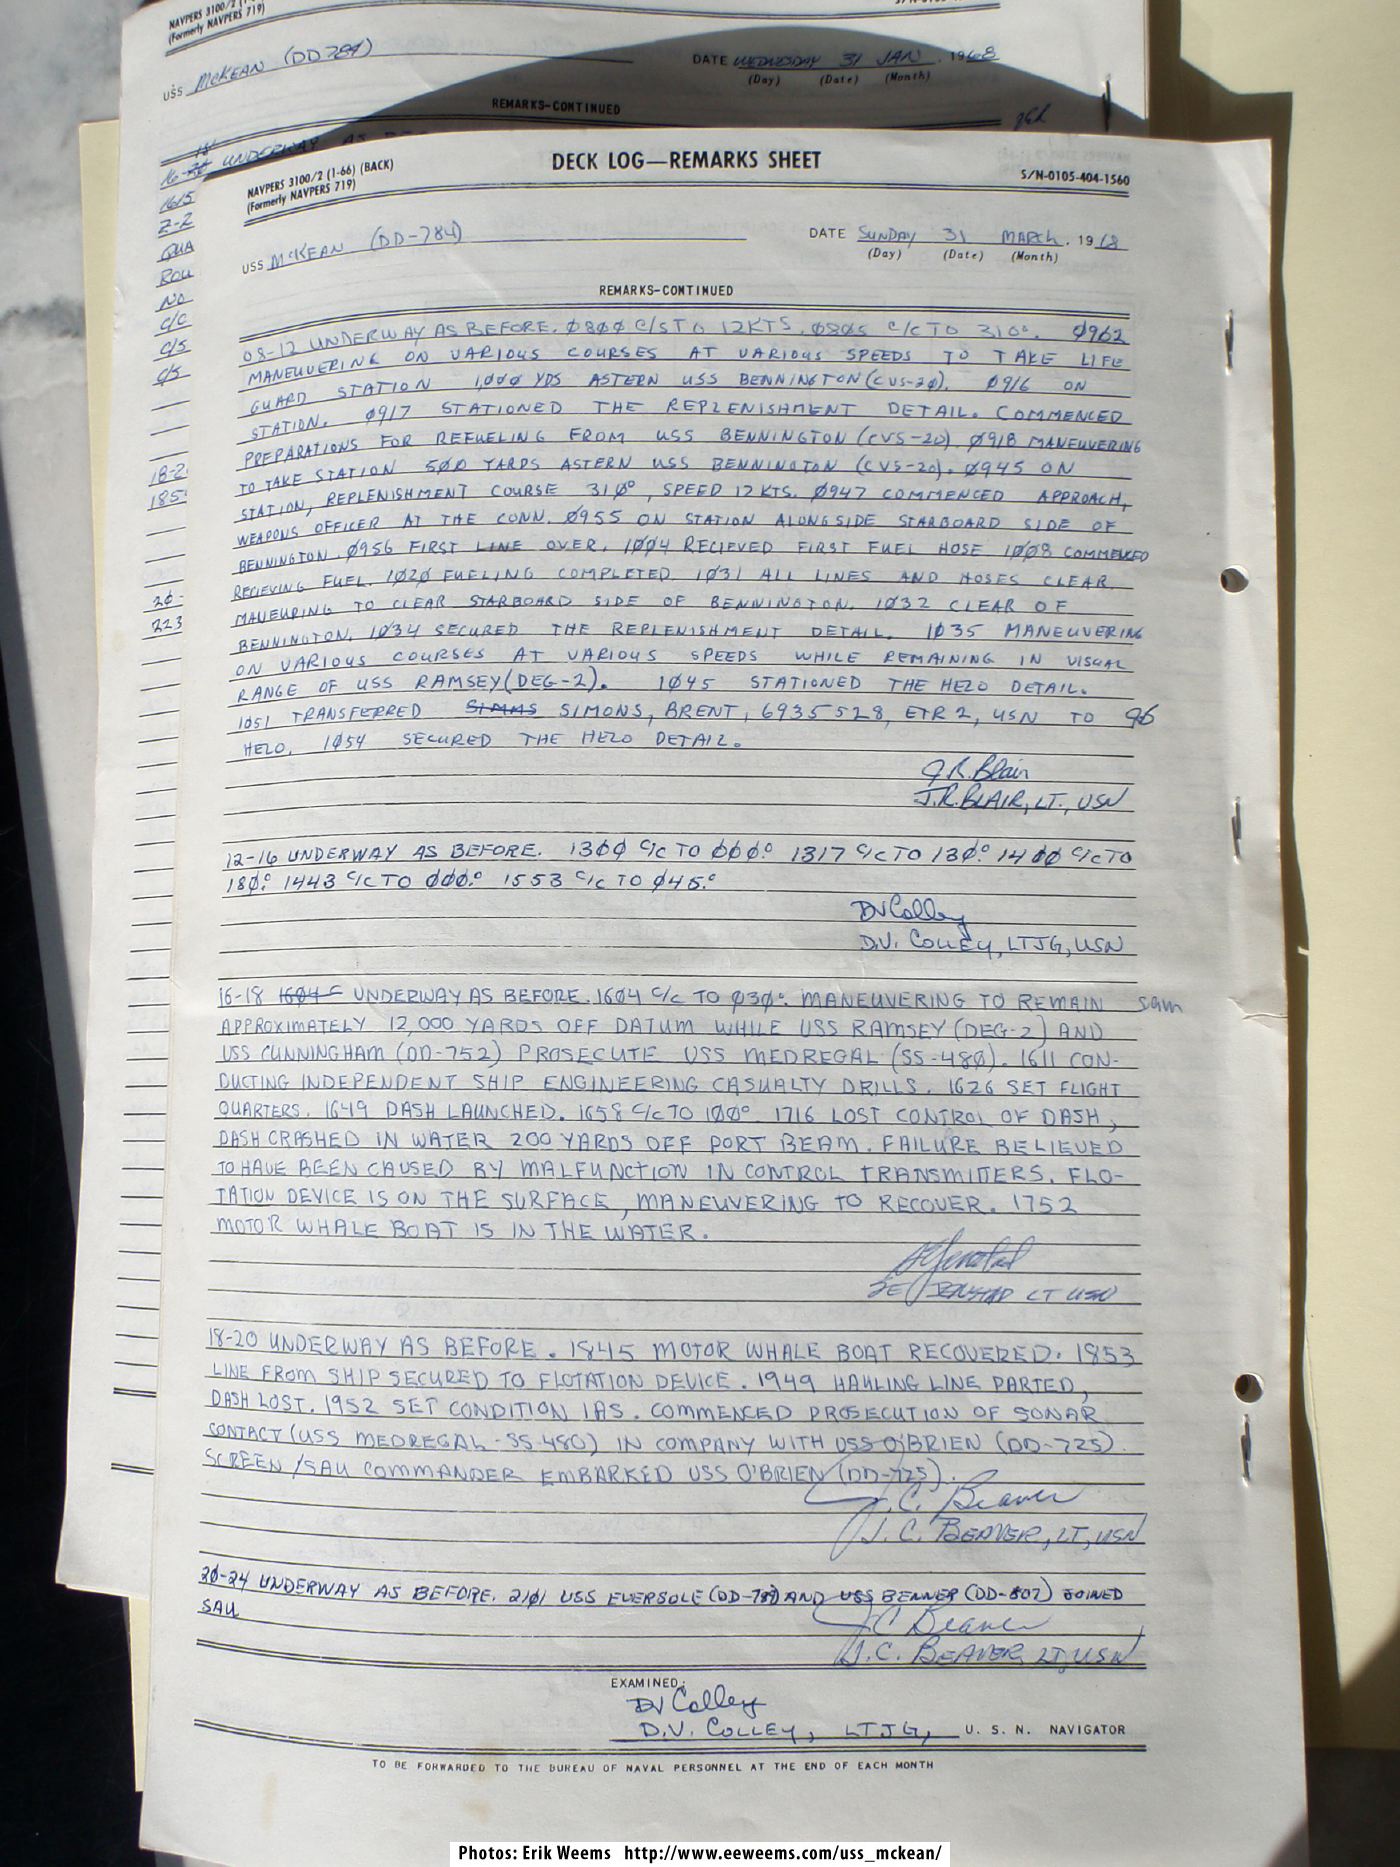 NAVPERS 3100/2
(Formerly NAVPERS 719)
USS McKEAN (DD 784)
DATE WEDNESDAY 31 JAN. 1968
(Day) (Date) (Month)
REMARKS-CONTINUED
UNDERWAY AS
1615
2-2
QUA
ROU
NO
C/C
C/S
C/S
18-2
185
20-
223
NAVPERS 3100/2 (1-66) (BACK)
(Formerly NAVPERS 719)
DECK LOG—REMARKS SHEET
S/N-0105-404-1560
USS McKEAN (DD-784)
DATE SUNDAY 31 MARCH, 1968
(Day) (Date) (Month)
REMARKS-CONTINUED
08-12 UNDERWAY AS BEFORE. 0800 C/S TO 12KTS. 0805 C/C TO 310°. 0902
MANEUVERING ON VARIOUS COURSES AT VARIOUS SPEEDS TO TAKE LIFE
GUARD STATION 1,000 YDS ASTERN USS BENNINGTON (CVS-20). 0916 ON
STATION. 0917 STATIONED THE REPLENISHMENT DETAIL. COMMENCED
PREPARATIONS FOR REFUELING FROM USS BENNINGTON (CVS-20). 0918 MANEUVERING
TO TAKE STATION 500 YARDS ASTERN USS BENNINGTON (CVS-20). 0945 ON
STATION, REPLENISHMENT COURSE 310°, SPEED 12 KTS. 0947 COMMENCED APPROACH,
WEAPONS OFFICER AT THE CONN. 0955 ON STATION ALONGSIDE STARBOARD SIDE OF
BENNINGTON. 0956 FIRST LINE OVER. 1004 RECIEVED FIRST FUEL HOSE 1008 COMMENCED
RECIEVING FUEL. 1020 FUELING COMPLETED. 1031 ALL LINES AND HOSES CLEAR.
MANEURING TO CLEAR STARBOARD SIDE OF BENNINGTON. 1032 CLEAR OF
BENNINGTON. 1034 SECURED THE REPLENISHMENT DETAIL. 1035 MANEUVERING
ON VARIOUS COURSES AT VARIOUS SPEEDS WHILE REMAINING IN VISUAL
RANGE OF USS RAMSEY (DEG-2). 1045 STATIONED THE HELO DETAIL.
1051 TRANSFERRED SIMMS SIMONS, BRENT, 6935528, ETR2, USN TO
HELO. 1054 SECURED THE HELO DETAIL.
J.R. Blair
J.R. BLAIR, LT., USN
12-16 UNDERWAY AS BEFORE. 1300 C/C TO 000°. 1317 C/C TO 130°. 1400 C/C TO
180°. 1443 C/C TO 000°. 1553 C/C TO 045°.
DV Colley
D.V. COLLEY, LTJG, USN
16-18 1604 C UNDERWAY AS BEFORE. 1604 C/C TO 030°. MANEUVERING TO REMAIN
APPROXIMATELY 12,000 YARDS OFF DATUM WHILE USS RAMSEY (DEG-2) AND
USS CUNNINGHAM (DD-752) PROSECUTE USS MEDREGAL (SS-480). 1611 CON-
DUCTING INDEPENDENT SHIP ENGINEERING CASUALTY DRILLS. 1626 SET FLIGHT
QUARTERS. 1649 DASH LAUNCHED. 1658 C/C TO 100°. 1716 LOST CONTROL OF DASH,
DASH CRASHED IN WATER 200 YARDS OFF PORT BEAM. FAILURE BELIEVED
TO HAVE BEEN CAUSED BY MALFUNCTION IN CONTROL TRANSMITTERS. FLO-
TATION DEVICE IS ON THE SURFACE, MANEUVERING TO RECOVER. 1752
MOTOR WHALE BOAT IS IN THE WATER.
LT USN
18-20 UNDERWAY AS BEFORE. 1845 MOTOR WHALE BOAT RECOVERED. 1853
LINE FROM SHIP SECURED TO FLOTATION DEVICE. 1949 HAULING LINE PARTED,
DASH LOST. 1952 SET CONDITION IAS. COMMENCED PROSECUTION OF SONAR
CONTACT (USS MEDREGAL-SS-480) IN COMPANY WITH USS O'BRIEN (DD-725).
SCREEN/SAU COMMANDER EMBARKED USS O'BRIEN (DD-725).
J. C. Beaver
J. C. BEAVER, LT, USN
20-24 UNDERWAY AS BEFORE. 2101 USS EVERSOLE (DD-789) AND USS BENNER (DD-807) JOINED
SAU
J C Beaver
J. C. BEAVER, LT, USN
EXAMINED:
DV Colley
D.V. COLLEY, LTJG, U. S. N. NAVIGATOR
TO BE FORWARDED TO THE BUREAU OF NAVAL PERSONNEL AT THE END OF EACH MONTH
Photos: Erik Weems http://www.eeweems.com/uss_mckean/